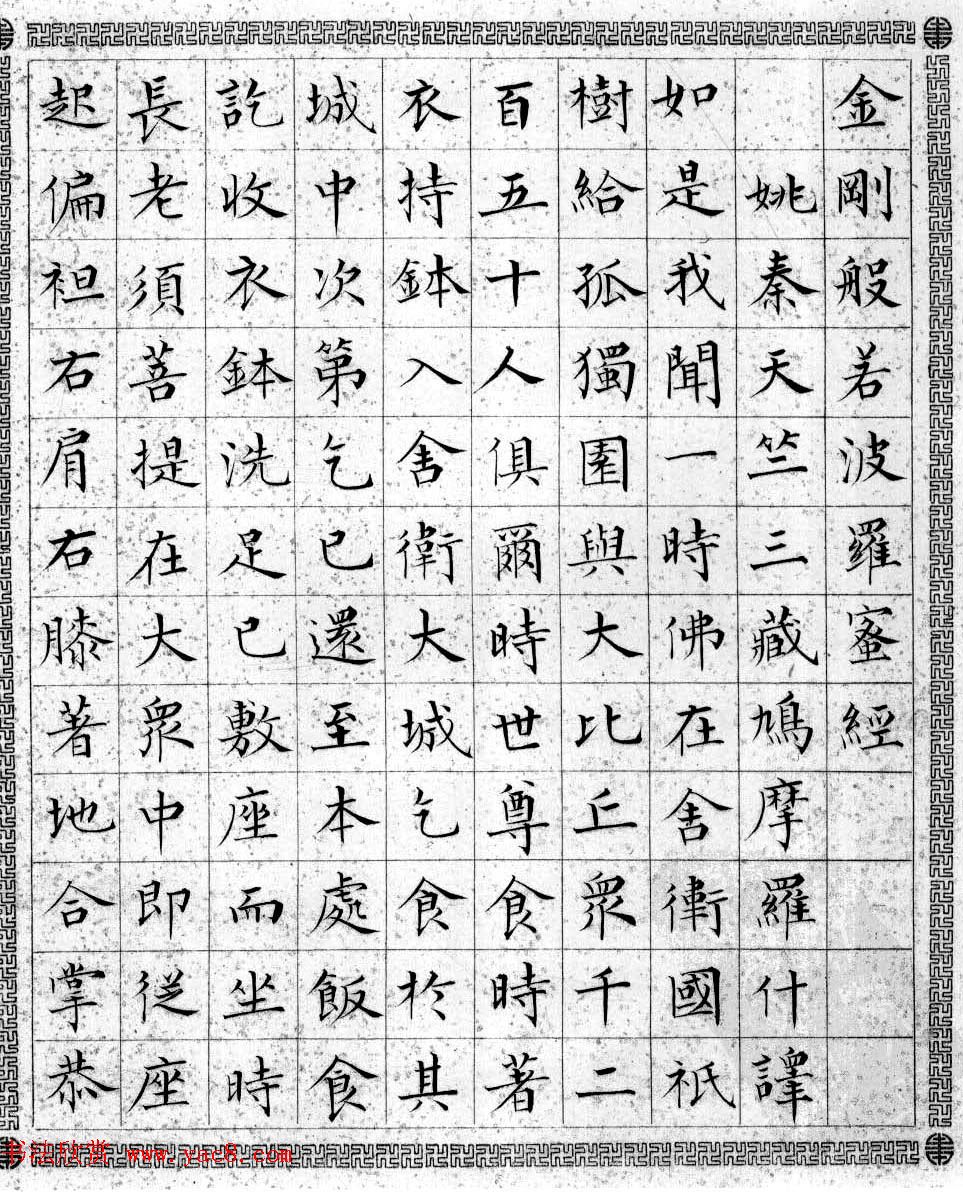 金剛般若波羅蜜經
姚秦天竺三藏鳩摩羅什譯
如是我聞一時佛在舍衛國祇
樹給孤獨園與大比丘眾千二
百五十人俱爾時世尊食時著
衣持鉢入舍衛大城乞食於其
城中次第乞已還至本處飯食
訖收衣鉢洗足已敷座而坐時
長老須菩提在大眾中即從座
起偏袒右肩右膝著地合掌恭
书法欣赏 www.yac8.com